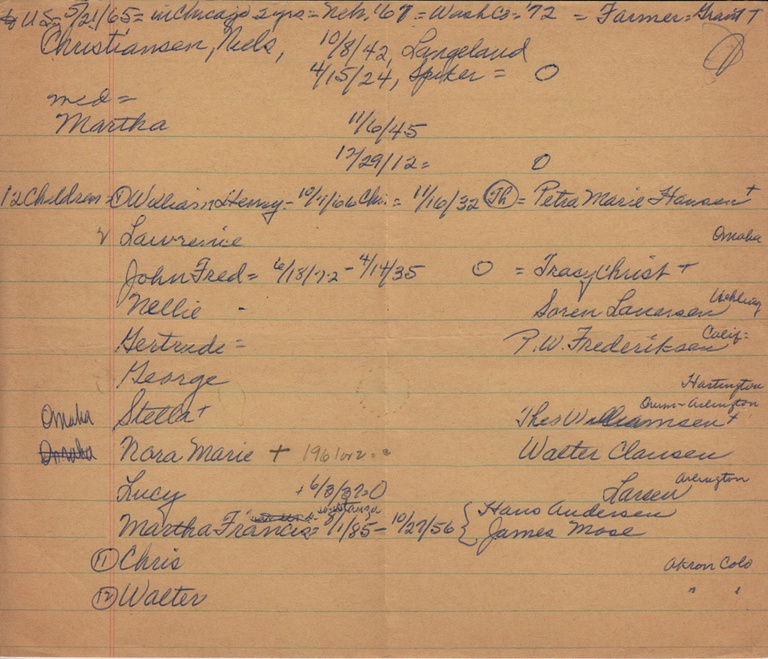 to U.S. = 5/21/65 = in Chicago 2 yrs = Neb. '67 = Wash Co = '72 = Farmer = Grant T
Christiansen, Niels, 10/8/42, Langeland
4/15/24, Spiker = O
med =
Martha 11/6/45
12/29/12 = O
12 Children = ① William Henry - 10/7/66 Chi. = 11/16/32 (Th) = Petra Marie Hansen +
2 Lawrence Omaha
John Fred = 6/18/72 - 4/14/35 O = Tracy Christ +
Nellie - Soren Laursen Uehling
Gertrude = P.W. Frederiksen Calif =
George Hartington
Omaha Stella + Thos Williamsen + Orum - Arlington
Omaha Nora Marie + 1961 or 2 = Walter Clausen
Lucy + 6/3/37 = O Larsen Arlington
Martha Francis = 8/1/85 - 10/27/56 { Hans Andersen
James Mose
⑪ Chris Akron Colo
⑫ Walter " "